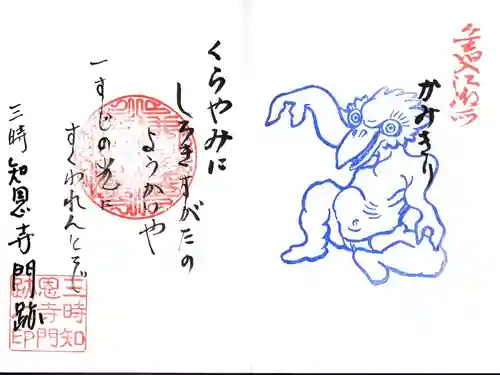 かみきり
くらやみに
しろきすがたの
ようかいや
一すじの光に
すくわれんとぞ
三時知恩寺門跡
三時知
恩寺門
跡之印